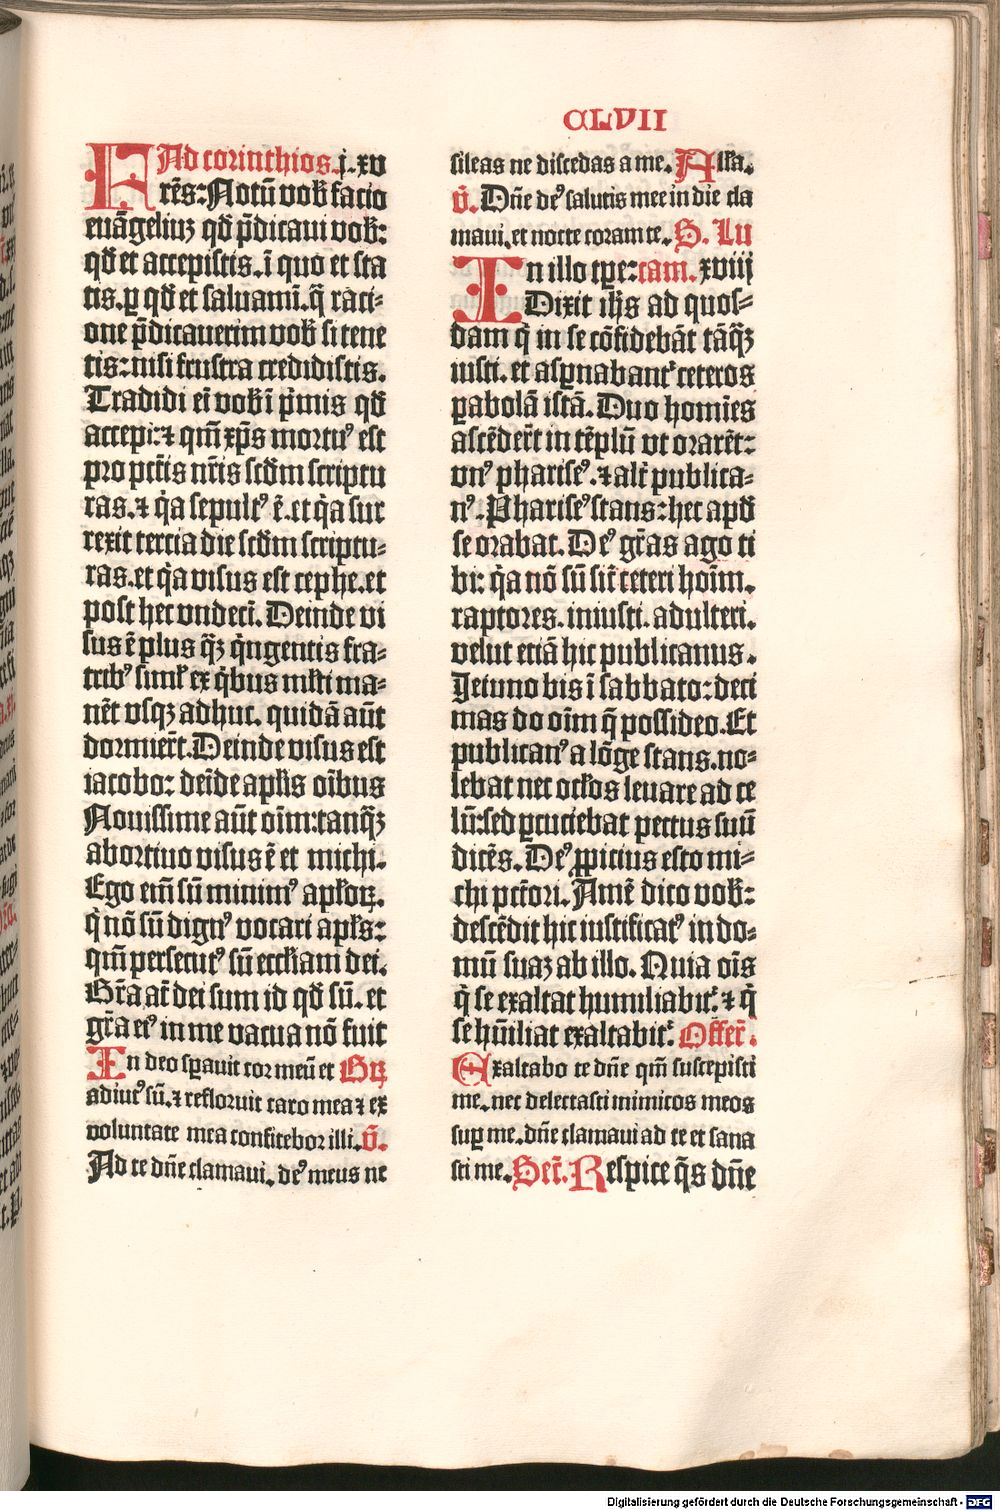 CLVII
Ad corinthios. j. xv
Fr̃es: Notũ vob̃ facio
euãgeliuꝫ qđ p̃dicaui vob̃:
qđ et accepistis. ĩ quo et sta
tis. ꝑ qđ et saluamĩ. q̃ raci-
one p̃dicauerim vob̃ si tene
tis: nisi frustra credidistis.
Tradidi eĩ vob̃ ĩ p̃mis qđ
accepi: ⁊ qm̃ xp̃s mortuꝰ est
pro pctĩs nr̃is scđm scriptu
ras. ⁊ q̃a sepultꝰ ẽ. et q̃a sur
rexit tercia die scđm scriptu-
ras. et q̃a visus est cephe. et
post hec vndecĩ. Deinde vi
sus ẽ plus q̃ꝫ q̃ngentis fra-
tribꝰ siml̃ ex q̃bus ml̃ti ma-
nẽt vsqꝫ adhuc. quidã aũt
dormier̃t. Deinde visus est
iacobo: deĩde apl̃is oĩbus
Nouissime aũt oĩm: tanq̃ꝫ
abortiuo visus ẽ et michi.
Ego em̃ sũ minimꝰ apl̃oꝝ.
q̃ nõ sũ dignꝰ vocari apl̃s:
qm̃ persecutꝰ sũ eccl̃iam dei.
Gr̃a aũt dei sum id qđ sũ. et
gr̃a eiꝰ in me vacua nõ fuit
In deo sꝑauit cor meũ et Gꝝ
adiutꝰ sũ. ⁊ refloruit caro mea ⁊ ex
voluntate mea confitebor illi. ṽ.
Ad te dñe clamaui. deꝰ meus ne
sileas ne discedas a me. All̃a.
ṽ. Dñe deꝰ salutis mee in die cla
maui. et nocte coram te. S. Lu
In illo tꝑe: cam. xviij
Dixit ih̃s ad quos-
dam q̃ in se cõfidebãt tãq̃ꝫ
iusti. et asꝑnabantᷣ ceteros
ꝑabolã istã. Duo homĩes
ascẽder̃t in tẽplũ vt orarẽt:
vnꝰ phariseꝰ. ⁊ alt̃ publica-
nꝰ. Phariseꝰ stans: hec apđ
se orabat. Deꝰ gr̃as ago ti
bi: q̃a nõ sũ sic̃ ceteri hoĩm.
raptores. iniusti. adulteri.
velut eciã hic publicanus.
Jeiuno bis ĩ sabbato: deci
mas do oĩm q̃ possideo. Et
publicanꝰ a lõge stans. no-
lebat nec ocl̃os leuare ad ce
lũ: sed ꝑcuciebat pectus suũ
dicẽs. Deꝰ ꝓpicius esto mi-
chi pctõri. Amẽ dico vob̃:
descẽdit hic iustificatꝰ in do-
mũ suaꝫ ab illo. Quia oĩs
q̃ se exaltat humiliabitᷣ. ⁊ q̃
se hũiliat exaltabitᷣ. Offer̃.
Exaltabo te dñe qm̃ suscepisti
me. nec delectasti inimicos meos
suꝑ me. dñe clamaui ad te et sana
sti me. Secr̃. Respice q̃s dñe
Digitalisierung gefördert durch die Deutsche Forschungsgemeinschaft - DFG